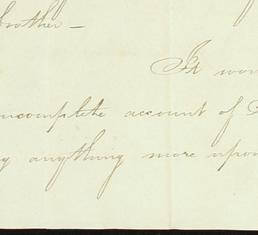 brother –
It wou
ncomplete account of
g anything more upon